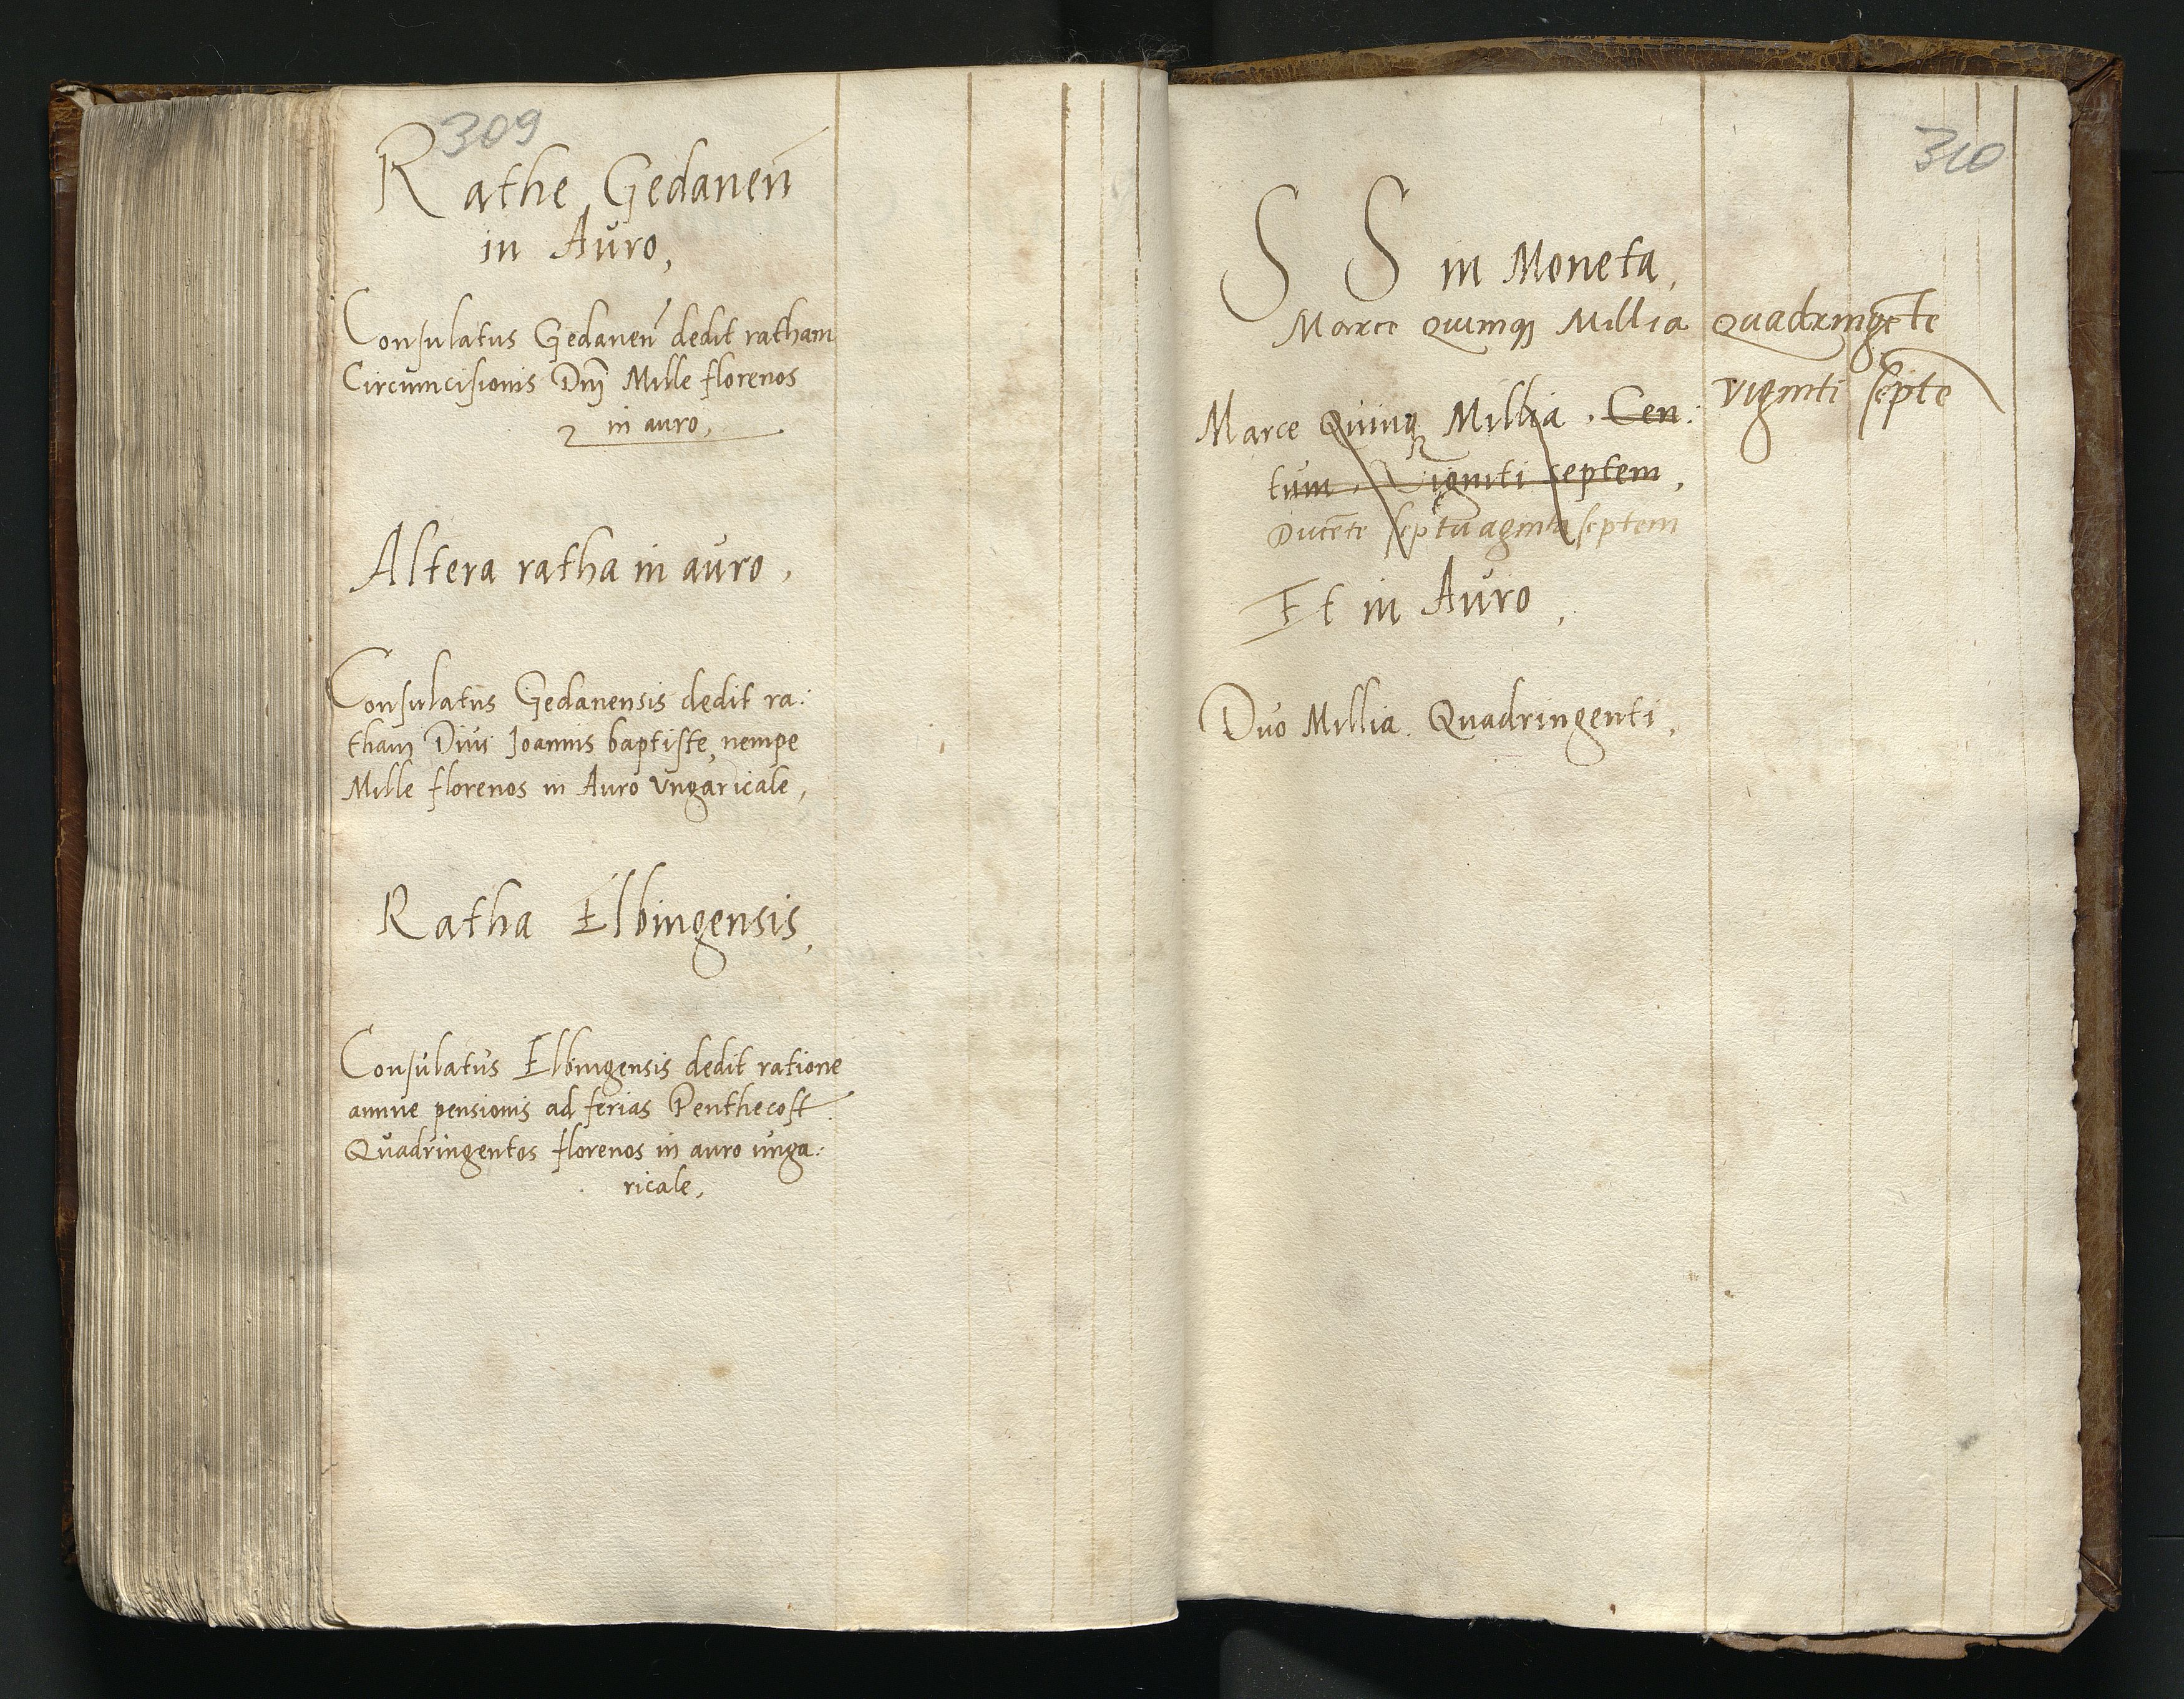 309
Rathe Gedanen̄
in Auro,
Consulatus Gedanen̄ dedit ratham
Circumcisionis Dnj̄ Mille florenos
in auro,
Altera ratha in auro,
Consulatus Gedanensis dedit ra:
tham Divi Joannis baptiste, nempe
Mille florenos in Auro Vngaricale,
Ratha Elbingensis,
Consulatus Elbingensis dedit ratione
annue pensionis ad ferias Penthecost
Quadringentos florenos in auro unga:
ricale,
310
S S in Moneta,
Marce Quinqȝ Millia Quadringēte
viginti septē
Marce Quinqȝ Millia, Cen:
tum, Viginti septem,
Ducēte septuaginta septem
Et in Auro,
Duo Millia. Quadringenti,